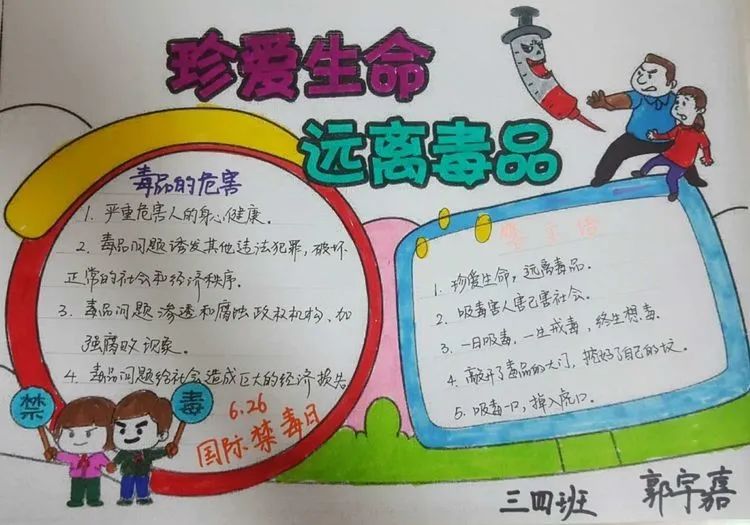 珍爱生命
远离毒品
毒品的危害
1. 严重危害人的身心健康。
2. 毒品问题诱发其他违法犯罪，破坏
正常的社会和经济秩序。
3. 毒品问题渗透和腐蚀政权机构、加
强腐败现象。
4. 毒品问题给社会造成巨大的经济损告
6.26
国际禁毒日
禁 毒
1. 珍爱生命，远离毒品。
2. 吸毒害人害己害社会。
3. 一日吸毒，一生戒毒，终生想毒。
4. 敲开了毒品的大门，挖好了自己的坟。
5. 吸毒一口，掉入虎口。
三四班 郭宇嘉